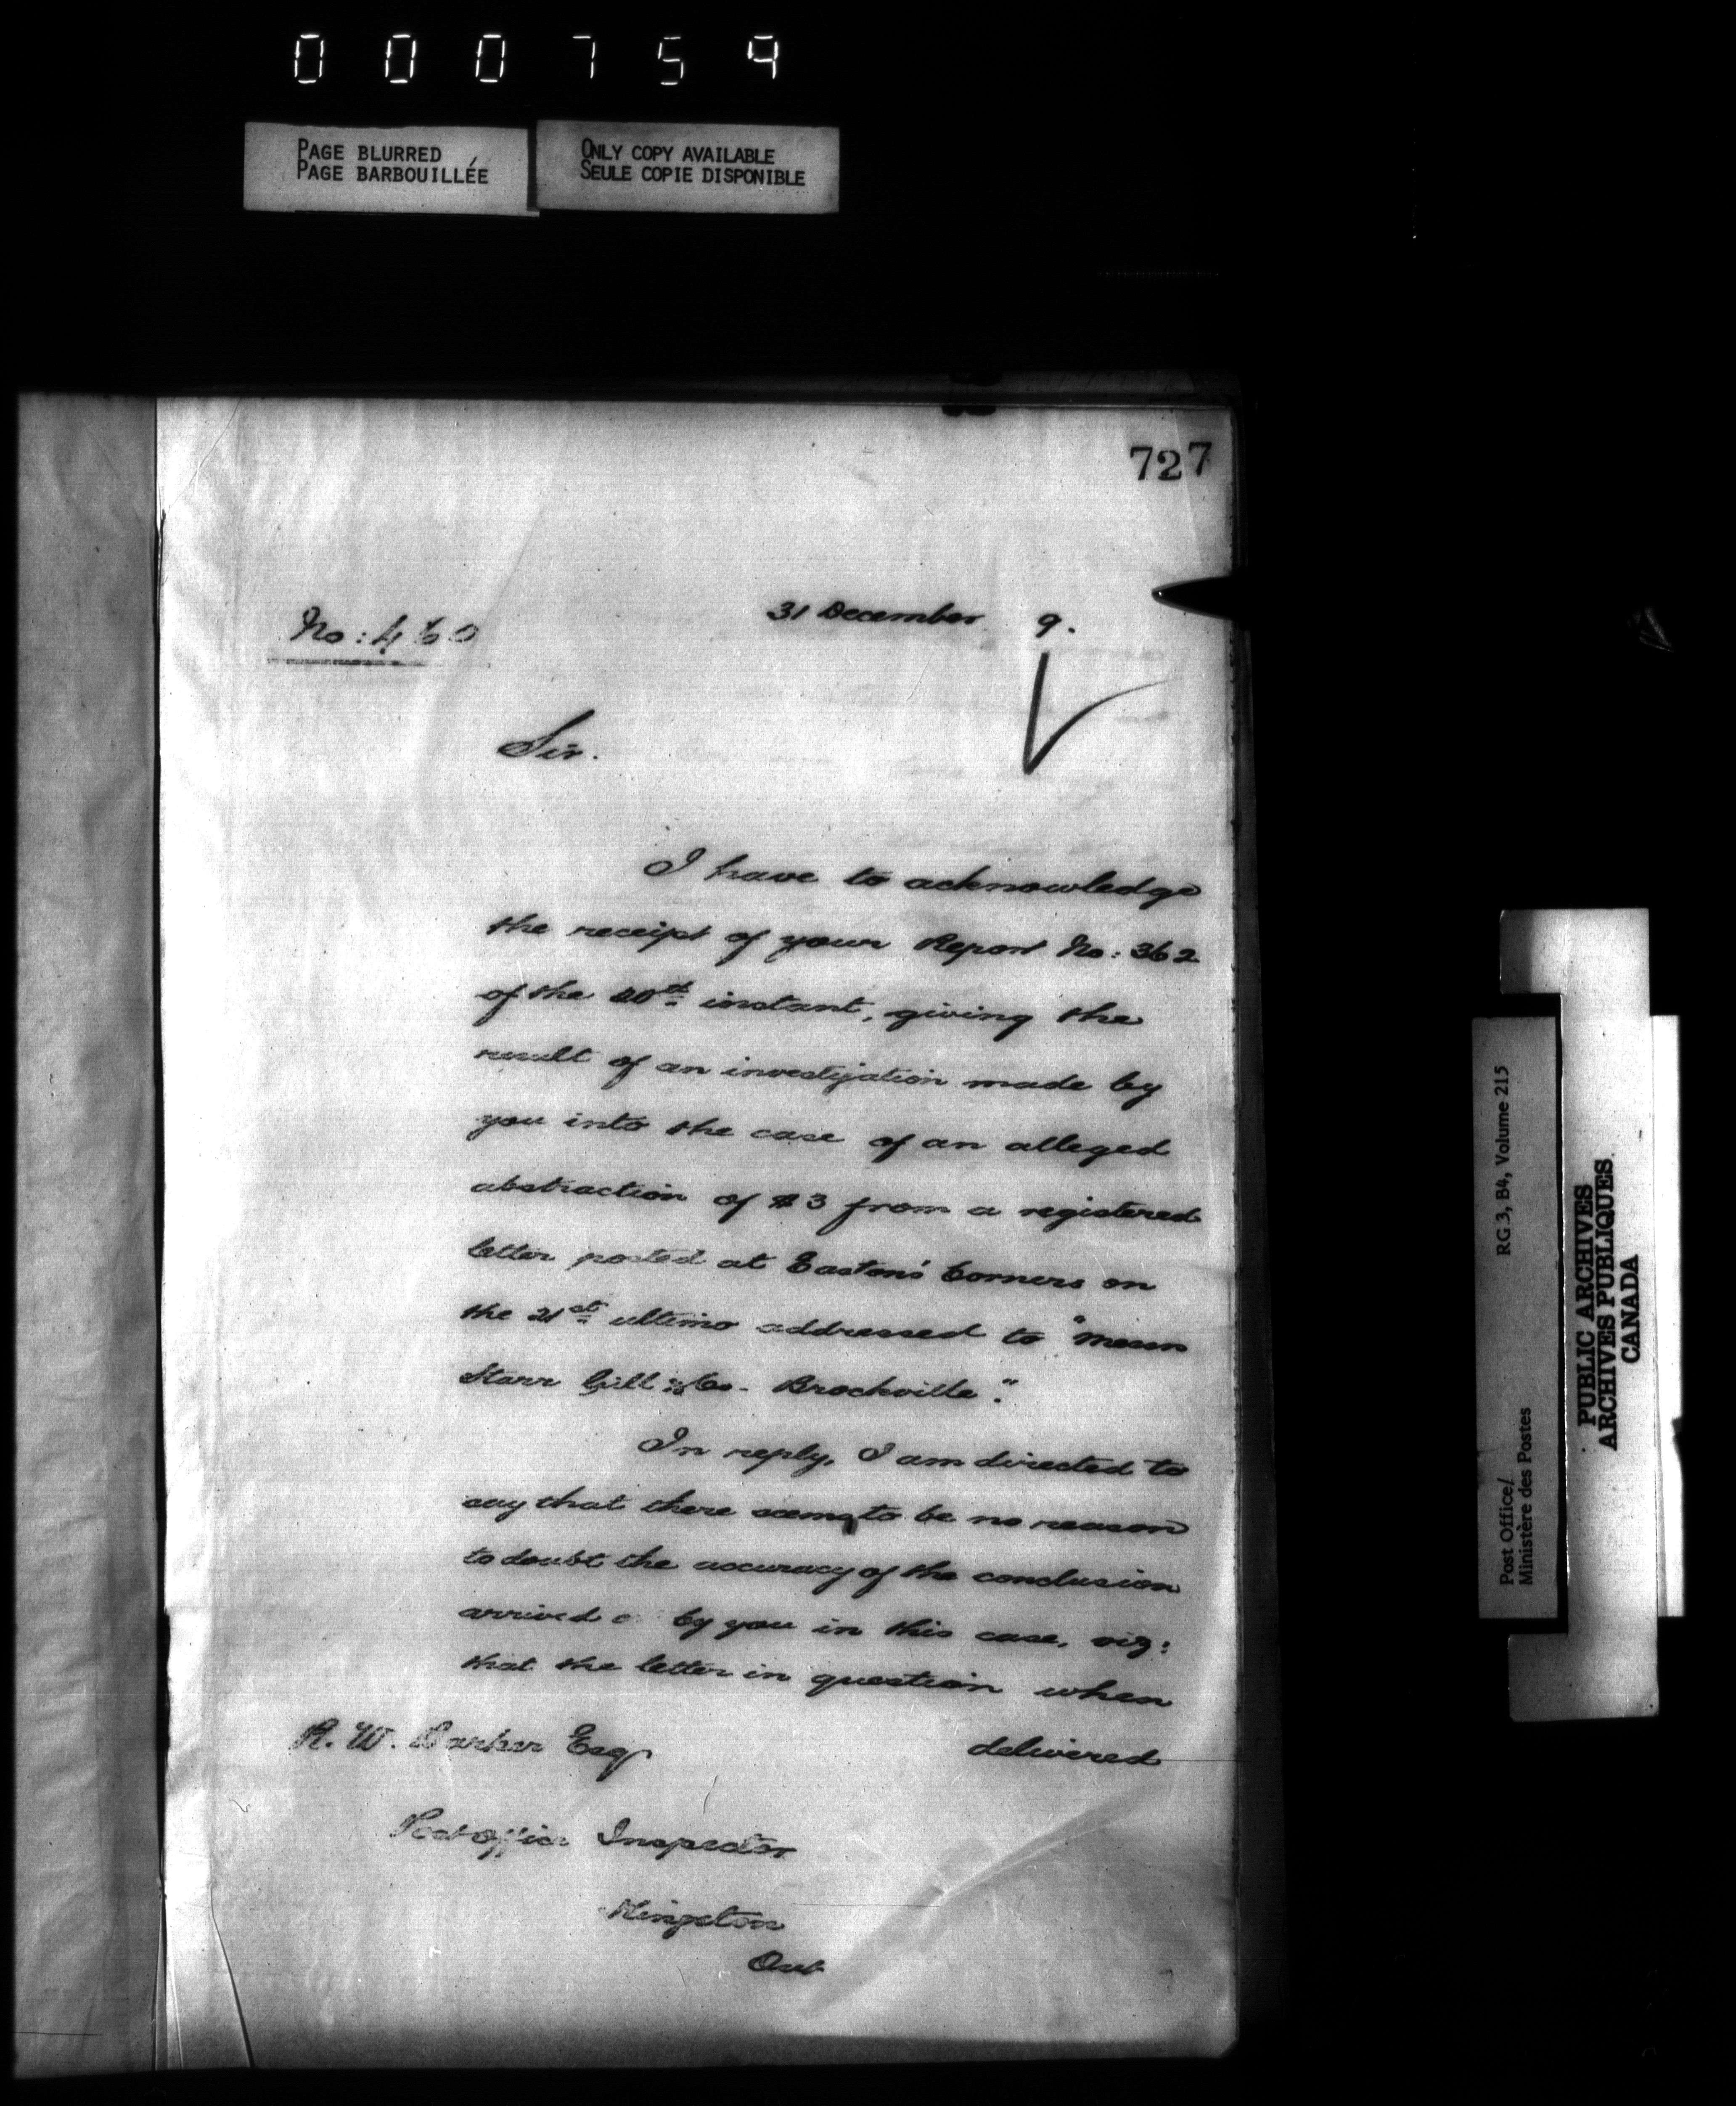 000759
PAGE BLURRED
PAGE BARBOUILLÉE
ONLY COPY AVAILABLE
SEULE COPIE DISPONIBLE
727
No: 460
31 December 9.
Sir.
I have to acknowledge
the receipt of your Report No: 362
of the instant, giving the
result of an investigation made by
you into the case of an alleged
abstraction of $3 from a registered
letter posted at Easton's Corners on
the 21st ultimo addressed to "Messrs
Starr Gill & Co - Brockville".
In reply, I am directed to
say that there seems to be no reason
to doubt the accuracy of the conclusion
arrived by you in this case, viz:
that the letter in question when
delivered
R. W. Barker Esq
Post Office Inspector
Kingston
Ont
RG 3, B4, Volume 215
Post Office/
Ministère des Postes
PUBLIC ARCHIVES
ARCHIVES PUBLIQUES
CANADA